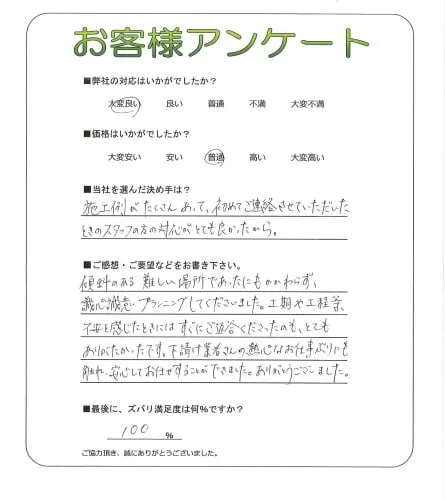 お客様アンケート
■弊社の対応はいかがでしたか？
大変良い 良い 普通 不満 大変不満
■価格はいかがでしたか？
大変安い 安い 普通 高い 大変高い
■当社を選んだ決め手は？
施工例がたくさんあって、初めてご連絡させていただいた
ときのスタッフの方の対応がとても良かったから。
■ご感想・ご要望などをお書き下さい。
傾斜のある難しい場所であったにもかかわらず、
誠心誠意プランニングしてくださいました。工期や工程等、
不安を感じたときにはすぐにご返答くださったのも、とても
ありがたかったです。下請け業者さんの熱心なお仕事ぶりにも
触れ、安心してお任せすることができました。ありがとうございました。
■最後に、ズバリ満足度は何%ですか？
100 %
ご協力頂き、誠にありがとうございました。